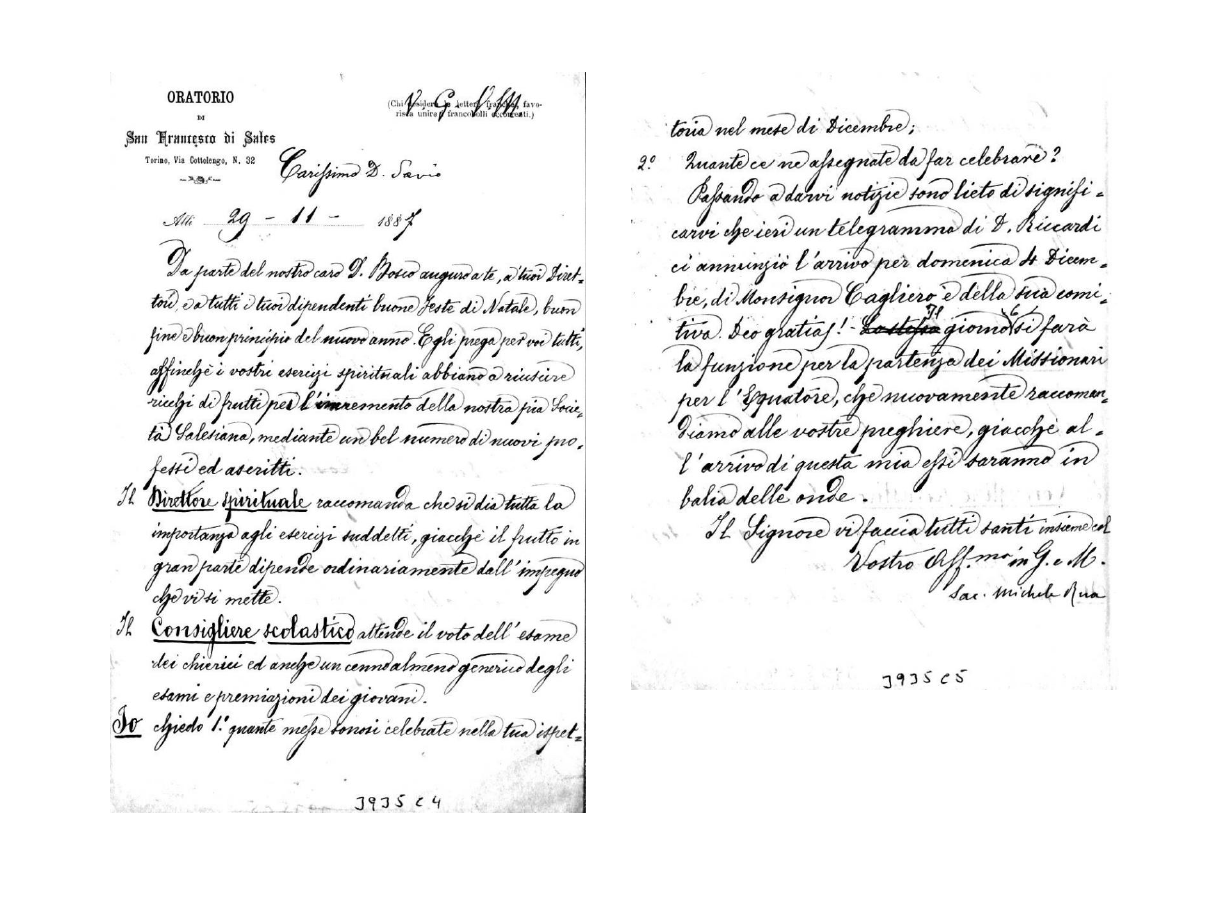 ORATORIO
DI
San Francesco di Sales
Torino, Via Cottolengo, N. 32
(Chi desidera la lettera franca, favo-
risca unire i francobolli occorrenti.)
V. G. M.
Carissimo D. Savio
Alli 29 - 11 - 1887
Da parte del nostro caro D. Bosco auguro a te, a tuoi Diret-
tori, e a tutti i tuoi dipendenti buone feste di Natale, buon
fine e buon principio del nuovo anno. Egli prega per voi tutti,
affinchè i vostri esercizi spirituali abbiano a riuscire
ricchi di frutti per l'incremento della nostra pia Socie-
tà Salesiana, mediante un bel numero di nuovi pro-
fessi ed ascritti.
Il Direttore spirituale raccomanda che si dia tutta la
importanza agli esercizi suddetti, giacchè il frutto in
gran parte dipende ordinariamente dall'impegno
che vi si mette.
Il Consigliere scolastico attende il voto dell'esame
dei chierici ed anche un cenno almeno generico degli
esami e premiazioni dei giovani.
Io chiedo 1.° quante messe sonosi celebrate nella tua ispet-
3935 C 4
toria nel mese di Dicembre;
2.° Quante ce ne assegnate da far celebrare?
Passando a darvi notizie sono lieto di signifi-
carvi che ieri un telegramma di D. Riccardi
ci annunziò l'arrivo per domenica 4 Dicem-
bre, di Monsignor Cagliero e della sua comi-
tiva. Deo gratias! - La stessa Il giorno 6 si farà
la funzione per la partenza dei Missionari
per l'Equatore, che nuovamente raccoman-
diamo alle vostre preghiere, giacchè al-
l'arrivo di questa mia essi saranno in
balia delle onde.
Il Signore vi faccia tutti santi insieme col
Vostro Aff.mo in G. e M.
Sac. Michele Rua
3935 C 5